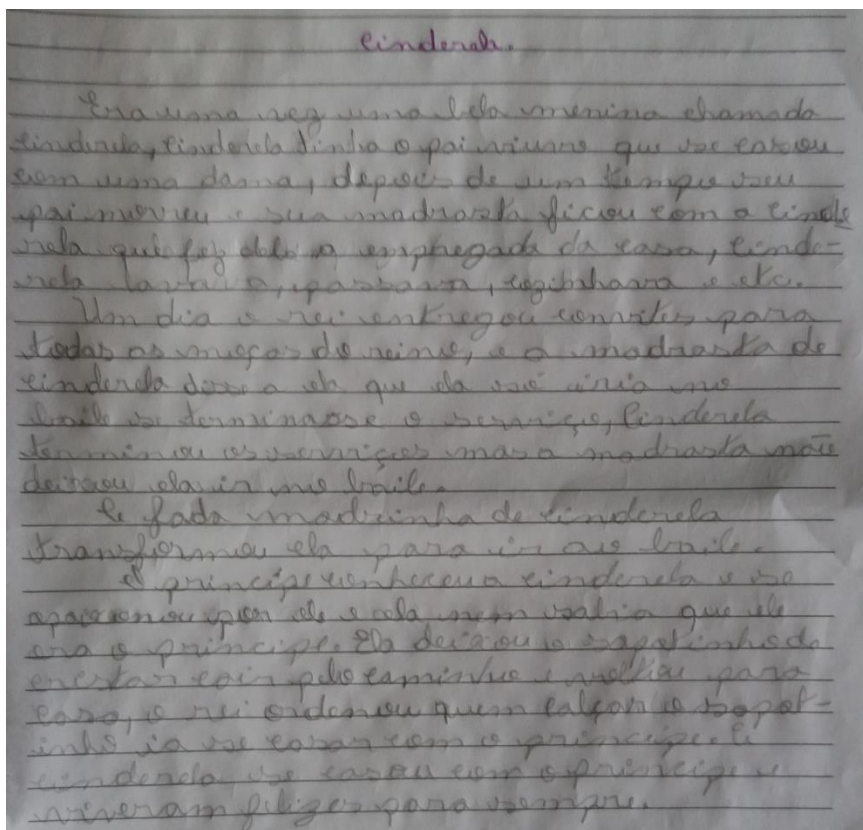 Cinderela.
Era uma vez uma bela menina chamada
cinderela, cinderela tinha o pai viuvo que se casou
com uma dama, depois de um tempo seu
pai morreu e sua madrasta ficou com a cinde
rela que fez dela a empregada da casa, cinde-
rela lavava, passava, cozinhava e etc.
Um dia o rei entregou convites para
todas as moças do reino, e a madrasta de
cinderela disse a ela que ela só iria no
baile se terminasse o serviço, Cinderela
terminou os serviços mas a madrasta não
deixou ela ir no baile.
A fada madrinha de cinderela
transformou ela para ir ao baile.
O principe conheceu a cinderela e se
por ele e ela nem sabia que ele
era o principe. Ela deixou o sapatinho de
cair pelo caminho e voltou para
casa, o rei ordenou quem calçar o sapat-
inho ia se casar com o principe. A
cinderela se casou com o principe e
viveram felizes para sempre.